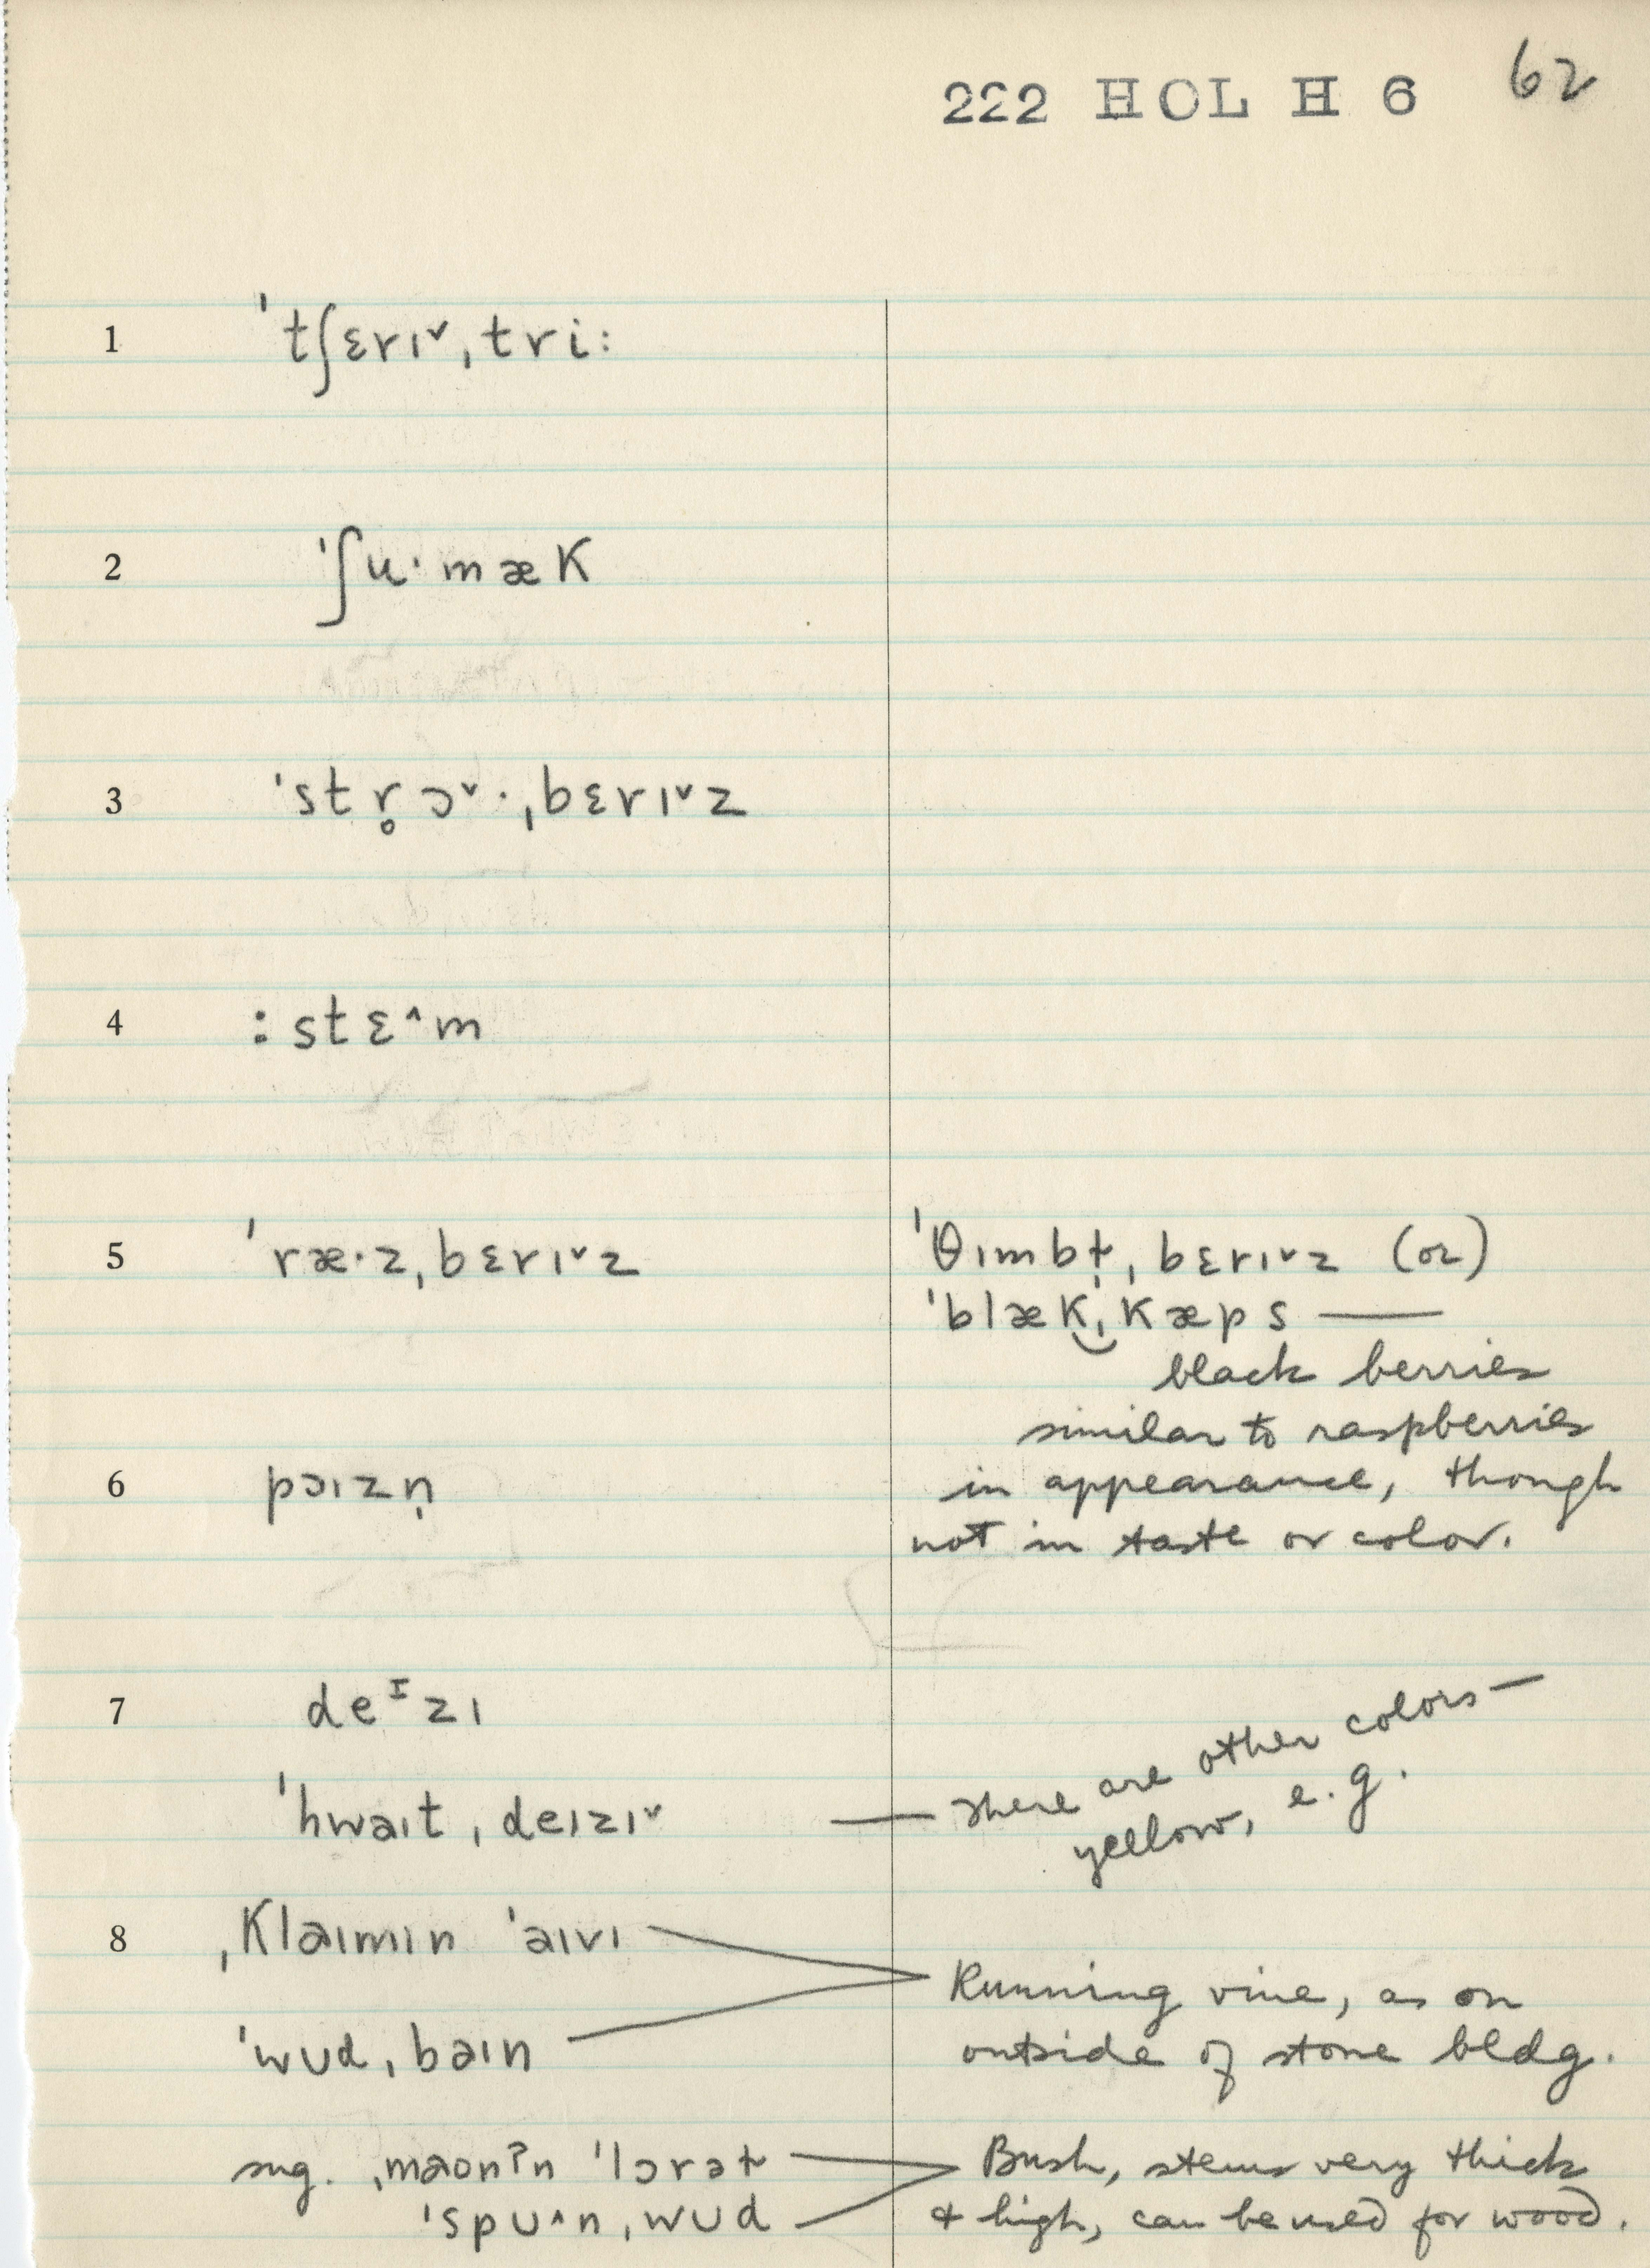 222 HOL H 6 62
1 ˈtʃɛrɪ˅ˌtri:
2 ˈʃu·mæk
3 ˈstr̥ɔ˅·ˌbɛrɪ˅z
4 :stɛ^m
5 ˈræ·zˌbɛrɪ˅z
ˈθɪmbɫ̩ˌbɛrɪ˅z (or)
ˈblæk͜ˌkæps —
black berries
similar to raspberries
6 pɔɪzn̩
in appearance, though
not in taste or color.
7 deᴵzɪ
ˈhwaɪtˌdeɪzɪ˅ — There are other colors —
yellow, e.g.
8 ˌklaɪmɪn ˈaɪvɪ
Running vine, as on
ˈwʊdˌbaɪn
outside of stone bldg.
sug. ˌmaʊnʔn ˈlɔrəɫ
Bush, stems very thick
ˈspʊ^nˌwʊd
& high, can be used for wood.